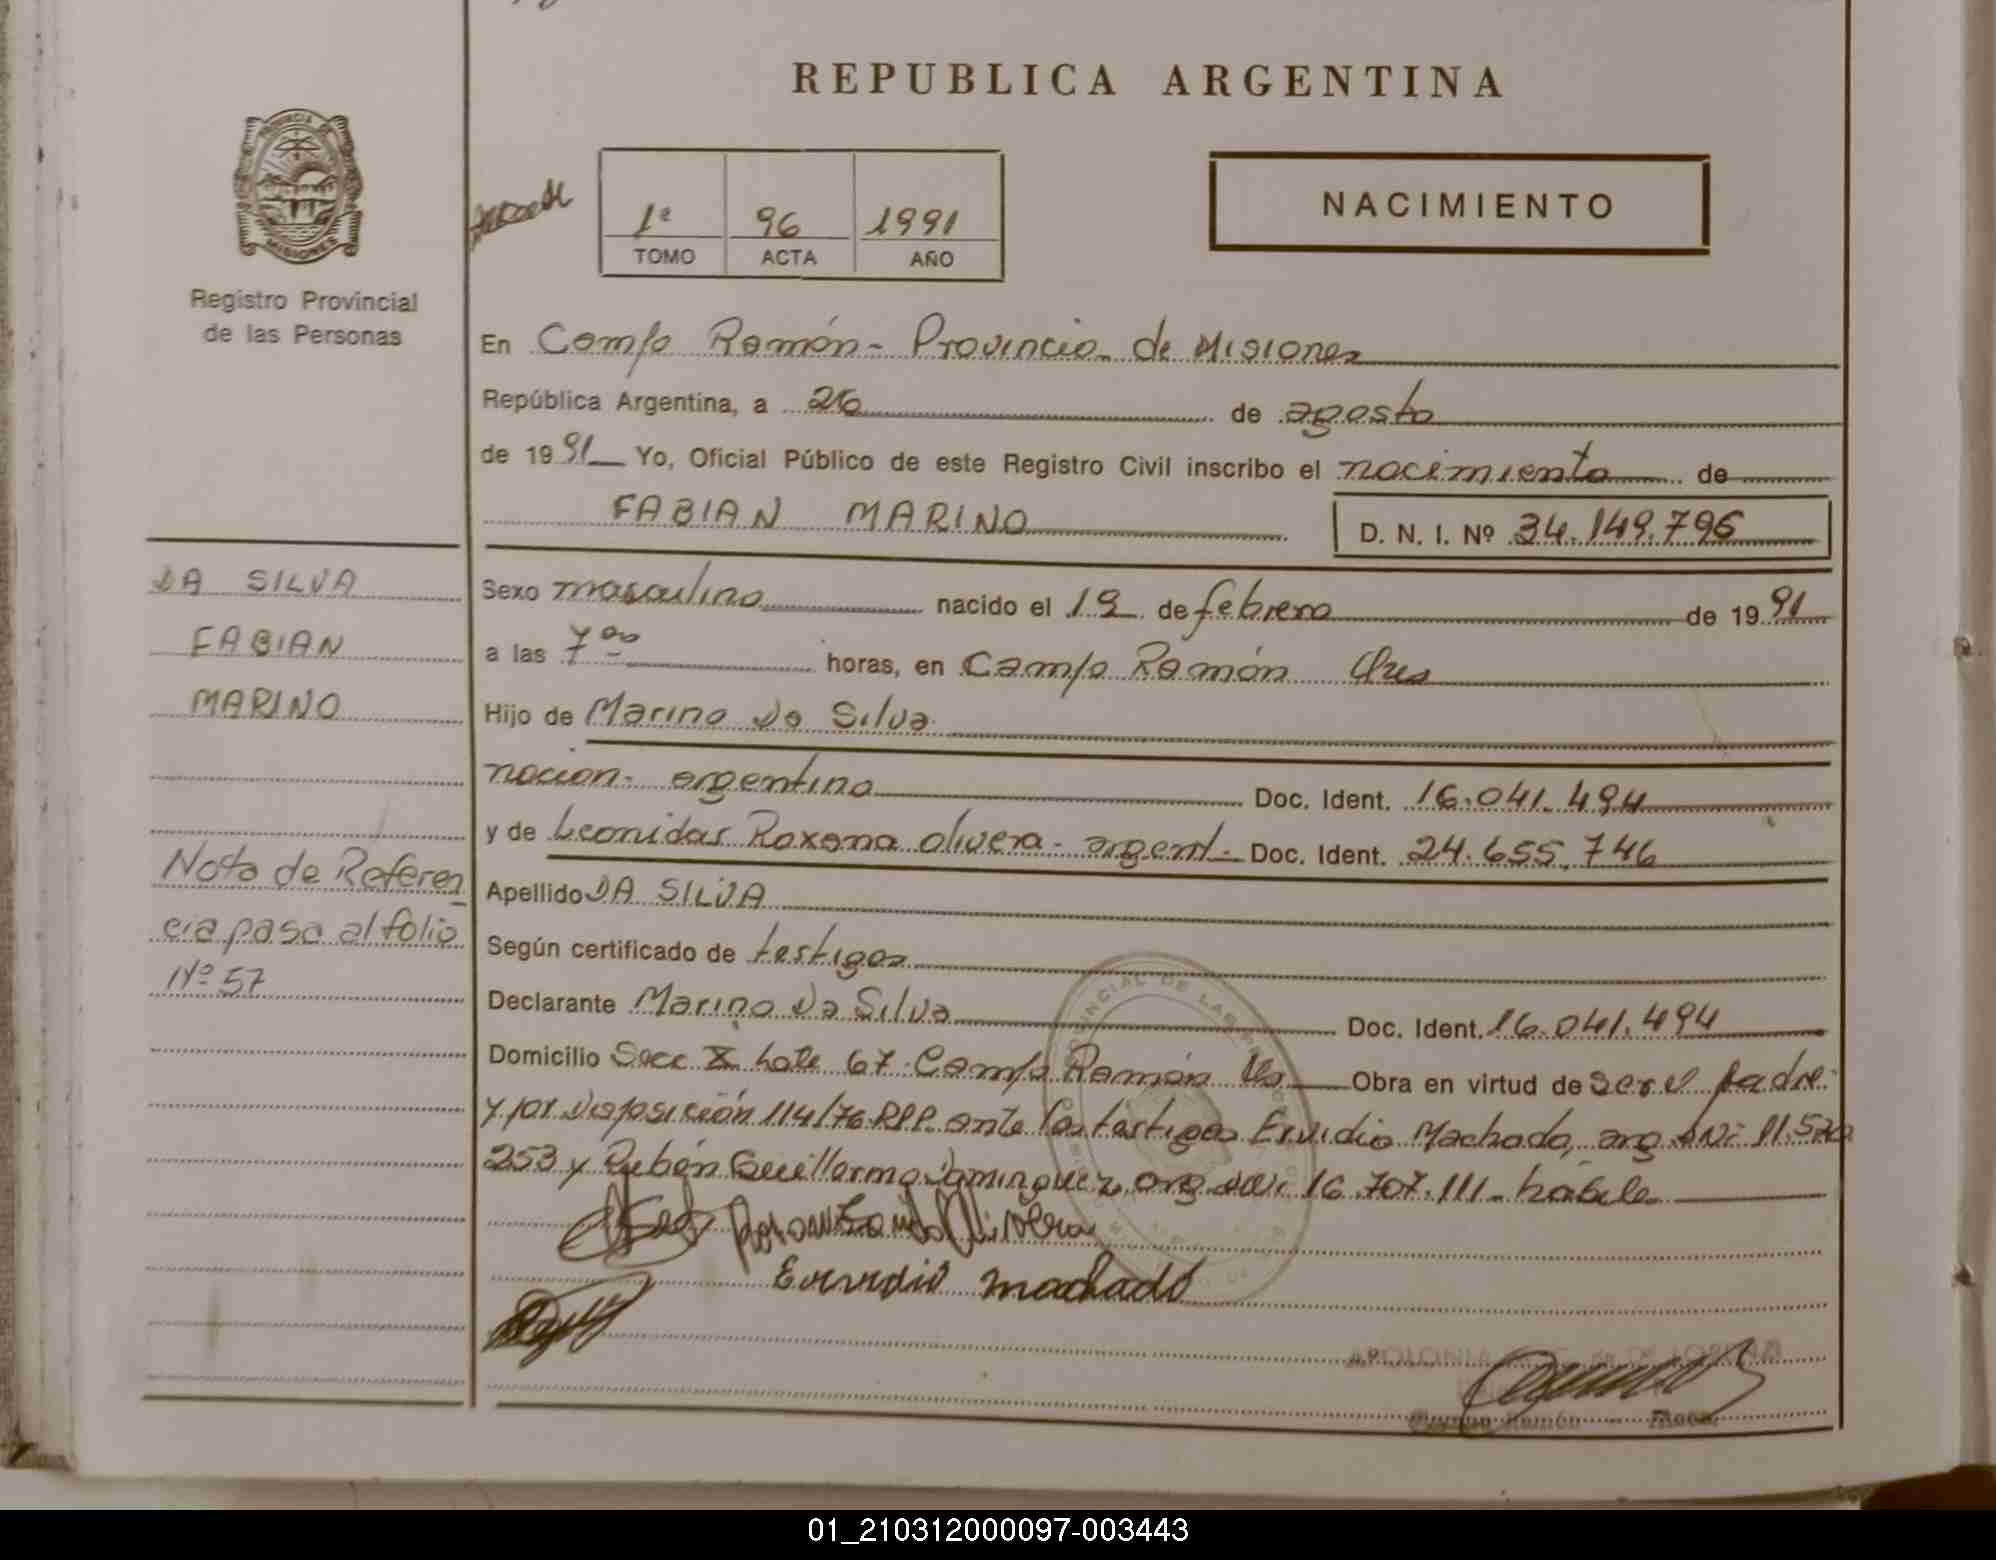 REPUBLICA ARGENTINA
PROVINCIA DE
MISIONES
Registro Provincial
de las Personas
1º 96 1991
TOMO ACTA AÑO
NACIMIENTO
En Campo Ramón - Provincia de Misiones
República Argentina, a 26 de agosto
de 1991 Yo, Oficial Público de este Registro Civil inscribo el nacimiento de
FABIAN MARINO
D. N. I. Nº 34.149.796
DA SILVA
FABIAN
MARINO
Sexo masculino nacido el 19 de febrero de 1991
a las 7 00 horas, en Campo Ramón
Hijo de Marino Da Silva
nacion. argentina Doc. Ident. 16.041.494
y de Leonidas Roxana Olivera - argent. Doc. Ident. 24.655.746
Nota de Referen
cia pasa al folio
Nº 57
Apellido DA SILVA
Según certificado de testigos
Declarante Marino Da Silva Doc. Ident. 16.041.494
Domicilio Secc X Lote 67 Campo Ramón Obra en virtud de ser el padre
y por Disposición 114/76 RPP. ante los testigos Ervidio Machado, arg. DNI: 11.572
253 y Rubén Guillermo Dominguez, arg. DNI: 16.707.111 - hábiles
Ervidio machado
Campo Ramón - Mnes.
01_210312000097-003443